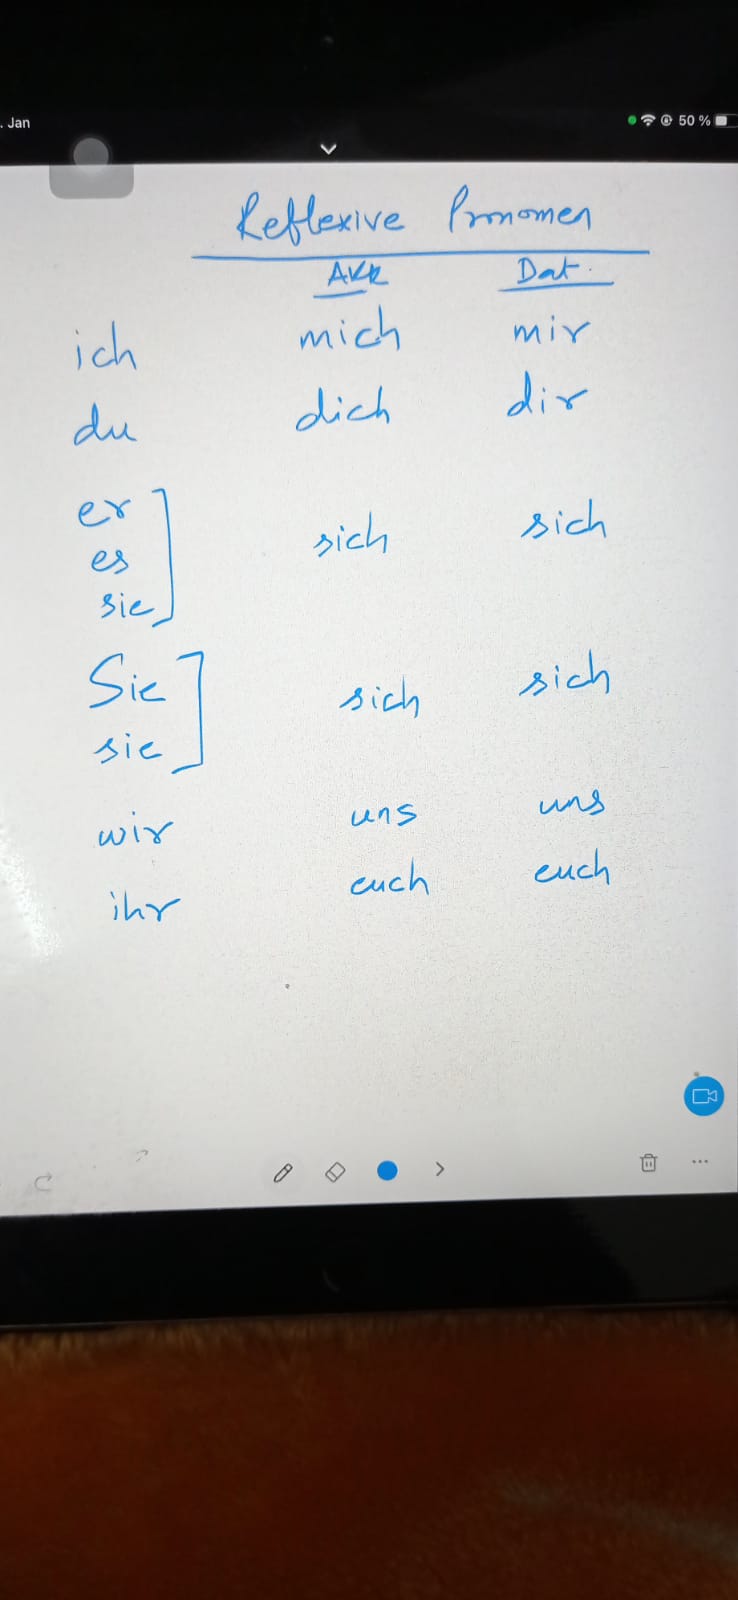 . Jan
50 %
Reflexive Pronomen
AKK Dat.
ich mich mir
du dich dir
er
es sich sich
sie
Sie sich sich
sie
wir uns uns
ihr euch euch